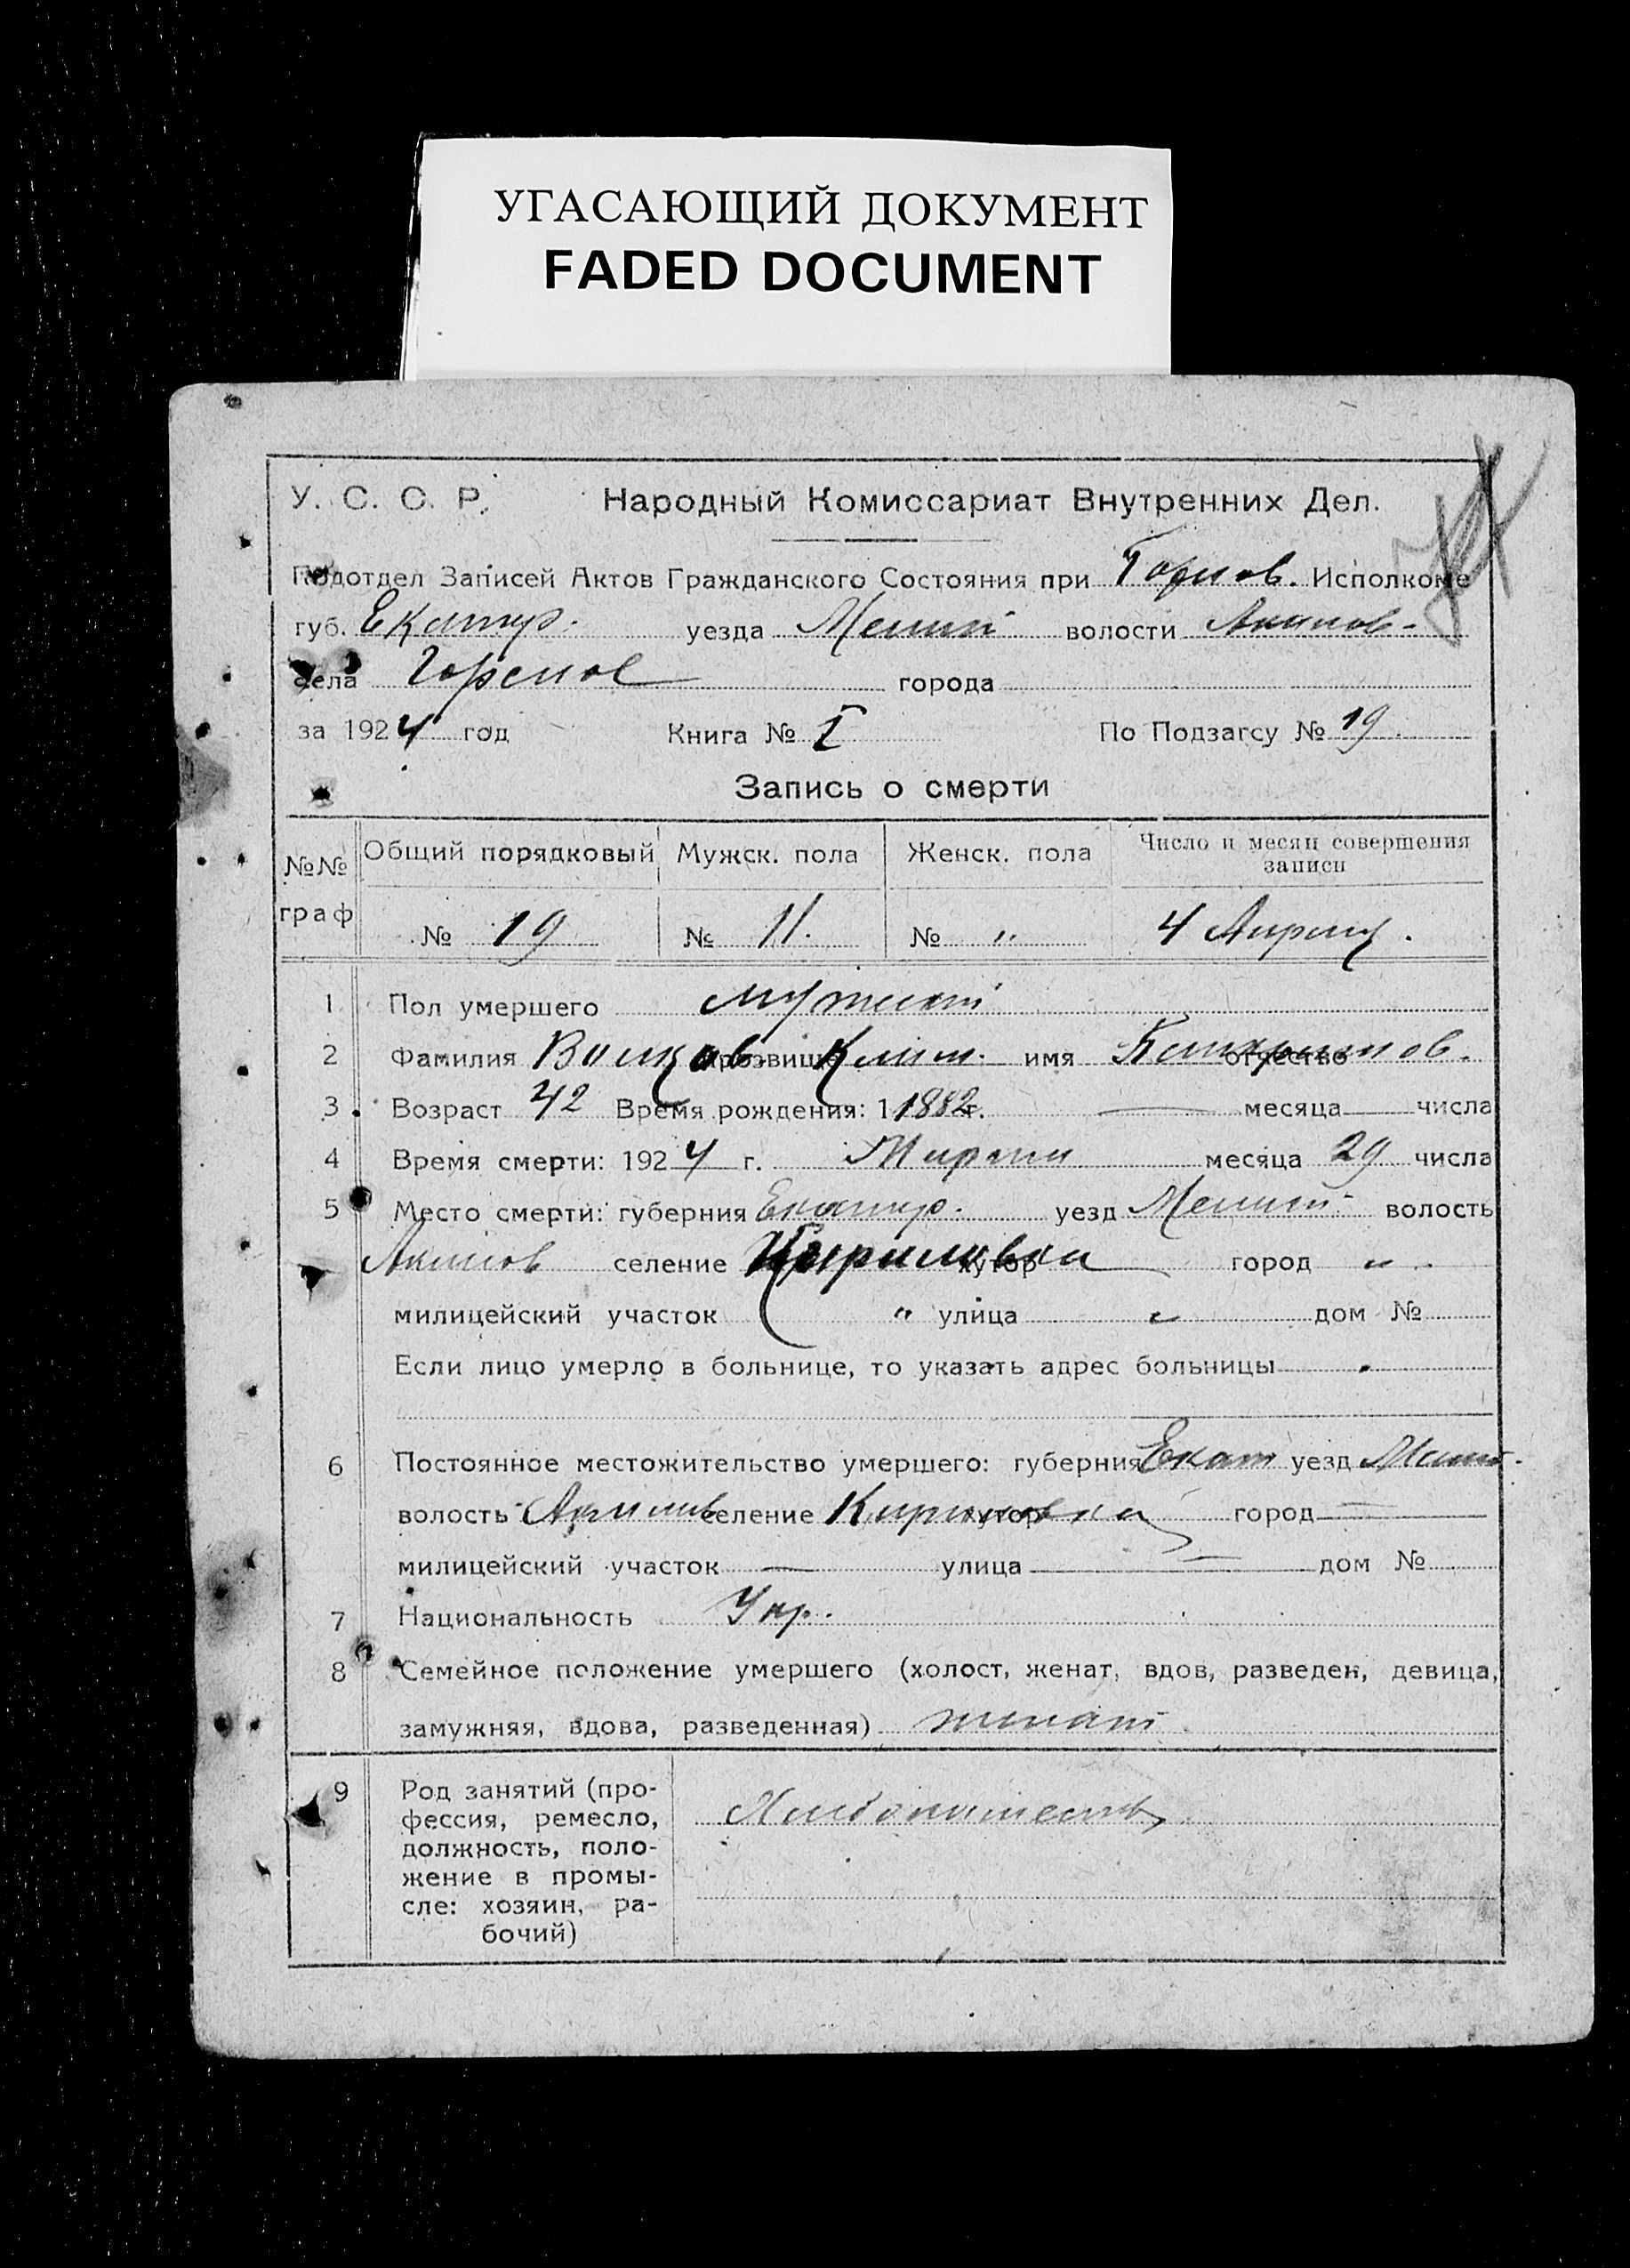 УГАСАЮЩИЙ ДОКУМЕНТ
FADED DOCUMENT
У. С. С. Р. Народный Комиссариат Внутренних Дел.
Подотдел Записей Актов Гражданского Состояния при Исполкоме
губ. Екатер. уезда Мелит волости Акимов-
села города
за 1924 год Книга № I По Подзагсу № 19
Запись о смерти
№№ граф Общий порядковый Мужск. пола Женск. пола Число и месяц совершения записи
№ 19 № 11. № " 4 Апреля.
1 Пол умершего мужской
2 Фамилия Волков прозвище Клим имя отчество
3 Возраст 42 Время рождения: 1 1882 г. — месяца — числа
4 Время смерти: 1924 г. Марта месяца 29 числа
5 Место смерти: губерния Екатер. уезд Мелит. волость
Акимов селение Кириловка хутор город "
милицейский участок " улица " дом №
Если лицо умерло в больнице, то указать адрес больницы
6 Постоянное местожительство умершего: губерния Екат уезд Мелит.
волость Акимов селение Кириловка хутор город —
милицейский участок — улица — дом №
7 Национальность Укр.
8 Семейное положение умершего (холост, женат, вдов, разведен, девица,
замужняя, вдова, разведенная) женат
9 Род занятий (про-
фессия, ремесло,
должность, поло-
жение в промы-
сле: хозяин, ра-
бочий)
Хлебопашество